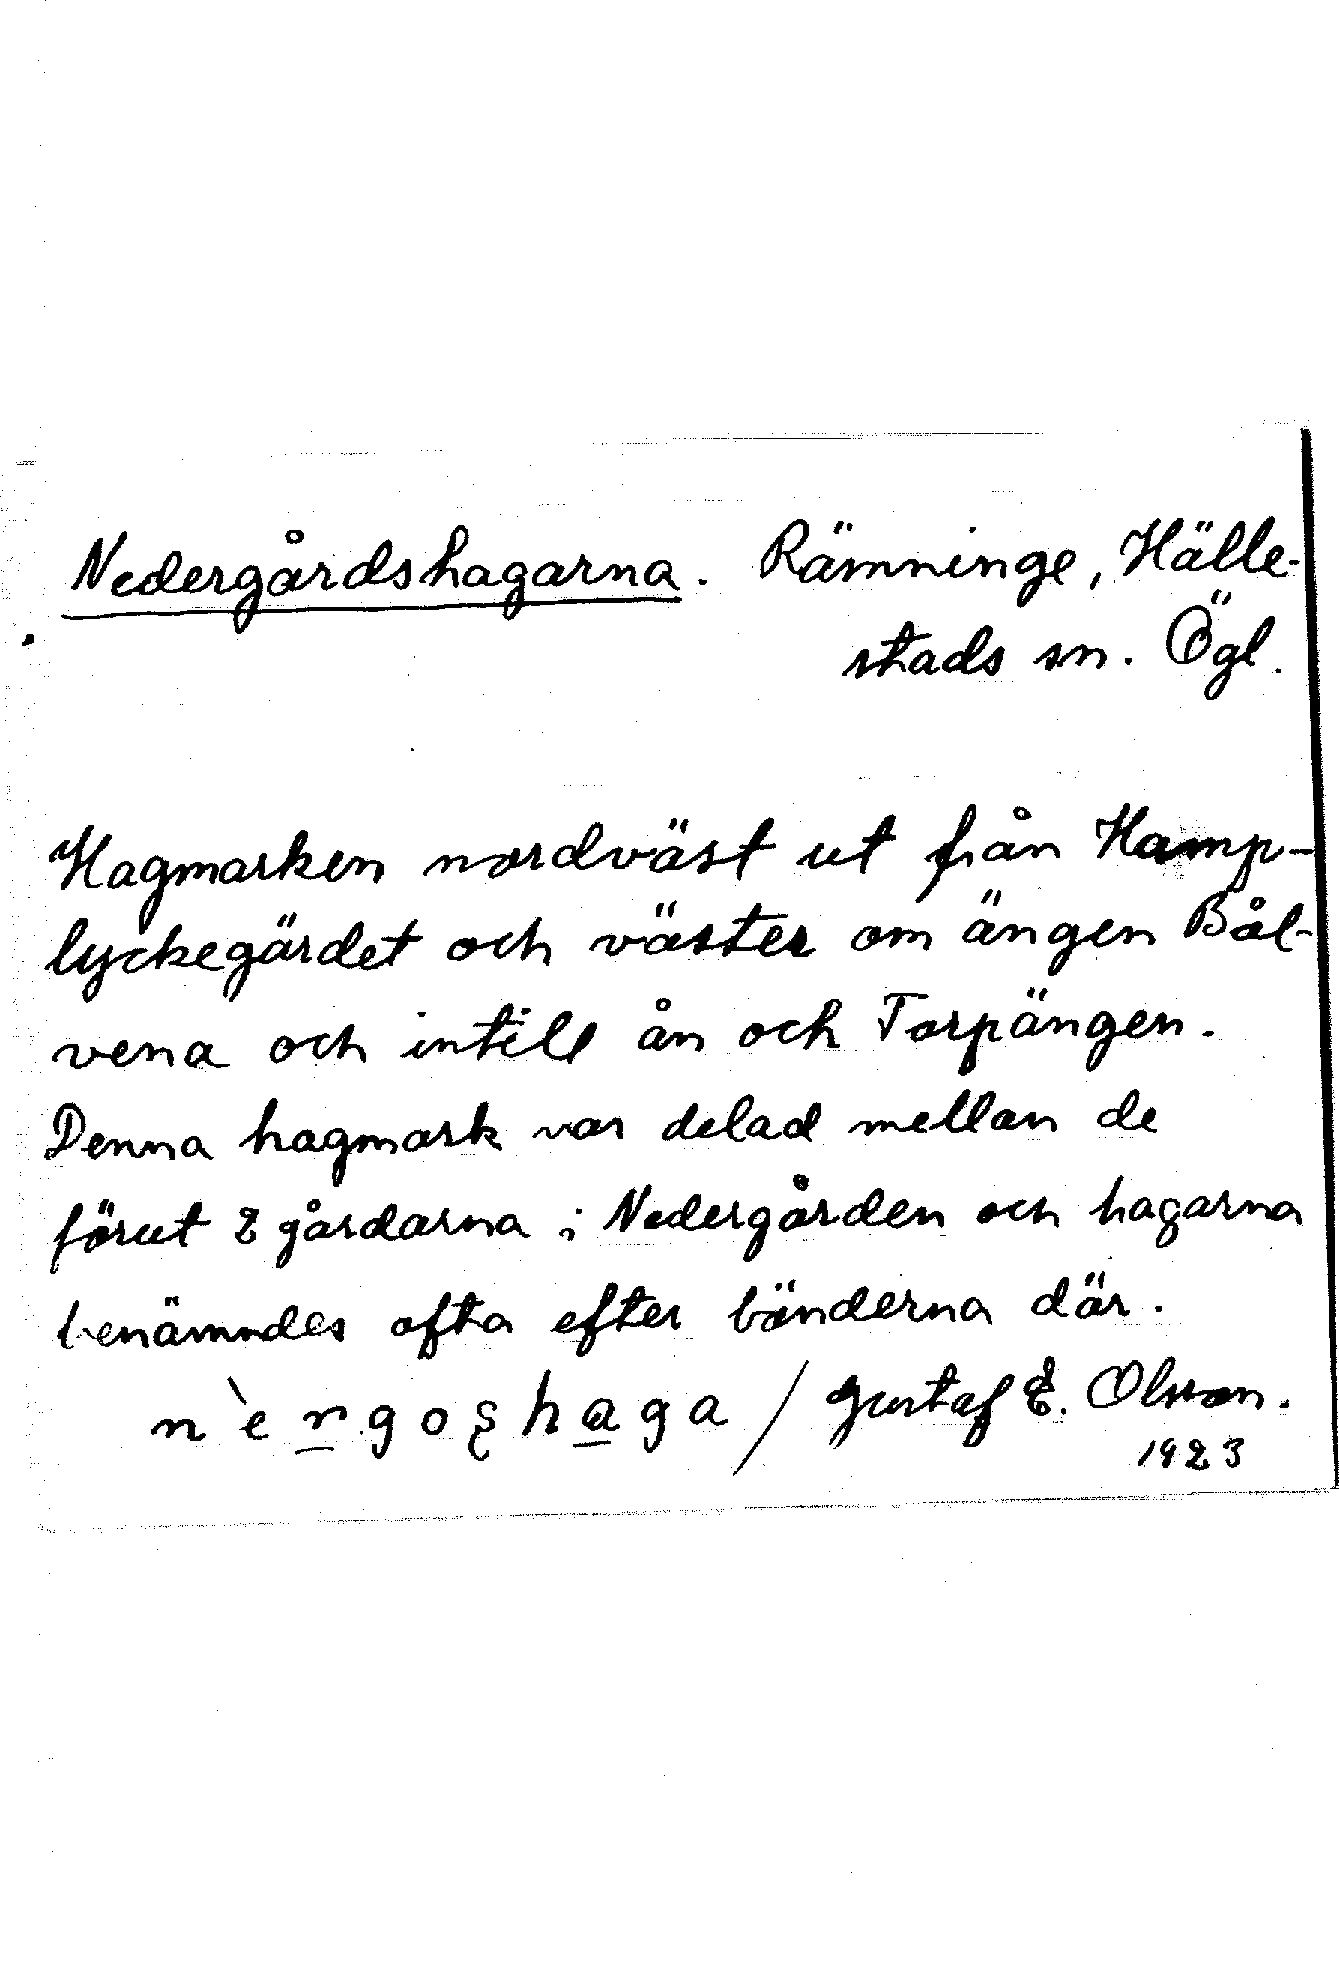 Nedergårdshagarna. Rämninge, Hälle-
stads sn. Ögl.
Hagmarken nordväst ut från Hamp-
lyckegärdet och väster om ängen Bål-
vena och intill ån och Torpängen.
Denna hagmark var delad mellan de
förut 2 gårdarna i Nedergården och hagarna
benämndes ofta efter bönderna där.
n`ergoshaga / Gustaf E. Olsson.
1923